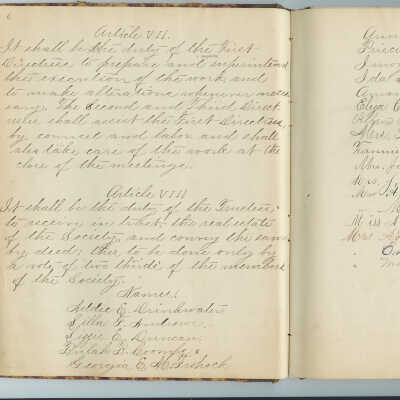 6
Article VII.
It shall be the duty of the First
Directress to prepare and superintend
the execution of the work and
to make alterations whenever neces
sary. The Second and Third Direct
resses shall assist the First Directress
by council and labor and shall
also take care of the work at the
close of the meetings.
Article VIII
It shall be the duty of the Trustees,
to receive in trust the real estate
of the Society, and convey the same
by deed; this to be done only by
a vote of two thirds of the members
of the Society.
Names.
Addie E. Drinkwater
Lizzie E. Duncan
Georgia E.
Ann
Prisci
Ida
Aman
Eliza C
Mrs.
Fannie
Mrs. J
Mrs
Miss A
Mrs